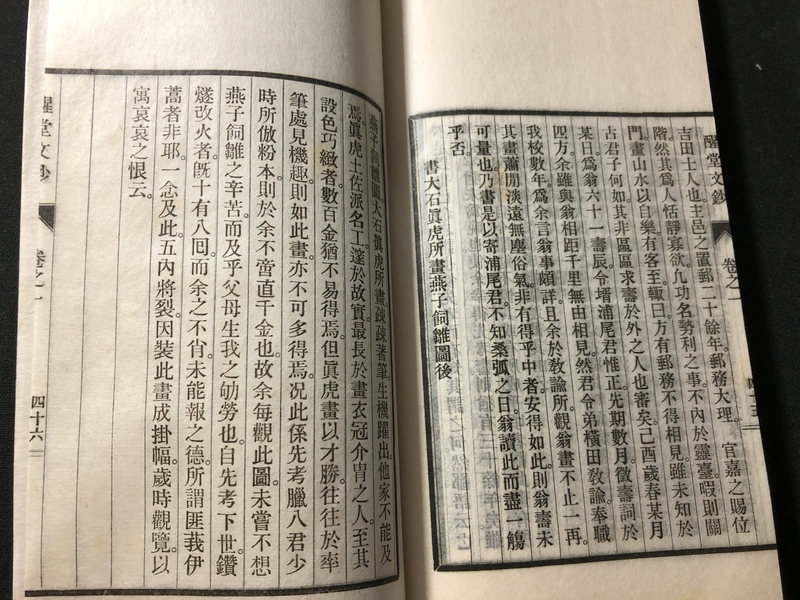 醒堂文鈔 卷之一 四十五
吉田士人也主邑之置郵二十餘年郵務大理。官嘉之賜位
階然其爲人恬靜寡欲凢功名勢利之事不內於靈臺暇則關
門畫山水以自樂有客至輙曰方有郵務不得相見雖未知於
古君子何如其非區區求壽於外之人也審矣己酉歲春某月
某日爲翁六十一壽辰令壻浦尾君惟正先期數月徵壽詞於
四方余雖與翁相距千里無由相見然君令弟橫田敎諭奉職
我校數年。爲余言翁事頗詳且余於敎諭所觀翁畫不止一再。
其畫蕭閒淡遠無塵俗氣。非有得乎中者。安得如此則翁壽未
可量也乃書是以寄浦尾君。不知桑弧之日。翁讀此而盡一觴
乎否。
書大石眞虎所畫燕子飼雛圖後
燕子飼雛圖大石眞虎所畫。疎疎著筆。生機躍出。他家不能及
焉。眞虎土佐派名工。邃於故實。最長於畫衣冠介冑之人。至其
設色巧緻者。數百金猶不易得焉。但眞虎畫以才勝。往往於率
筆處見機趣。則如此畫。亦不可多得焉。况此係先考臘八君少
時所倣粉本。則於余不啻直千金也。故余每觀此圖。未嘗不想
燕子飼雛之辛苦。而及乎父母生我之劬勞也。自先考下世。鑽
燧改火者。旣十有八回。而余之不肖。未能報之德。所謂匪莪伊
蒿者非耶。一念及此。五內將裂。因装此畫成掛幅。歲時觀覽。以
寓哀哀之恨云。
醒堂文鈔 卷之一 四十六